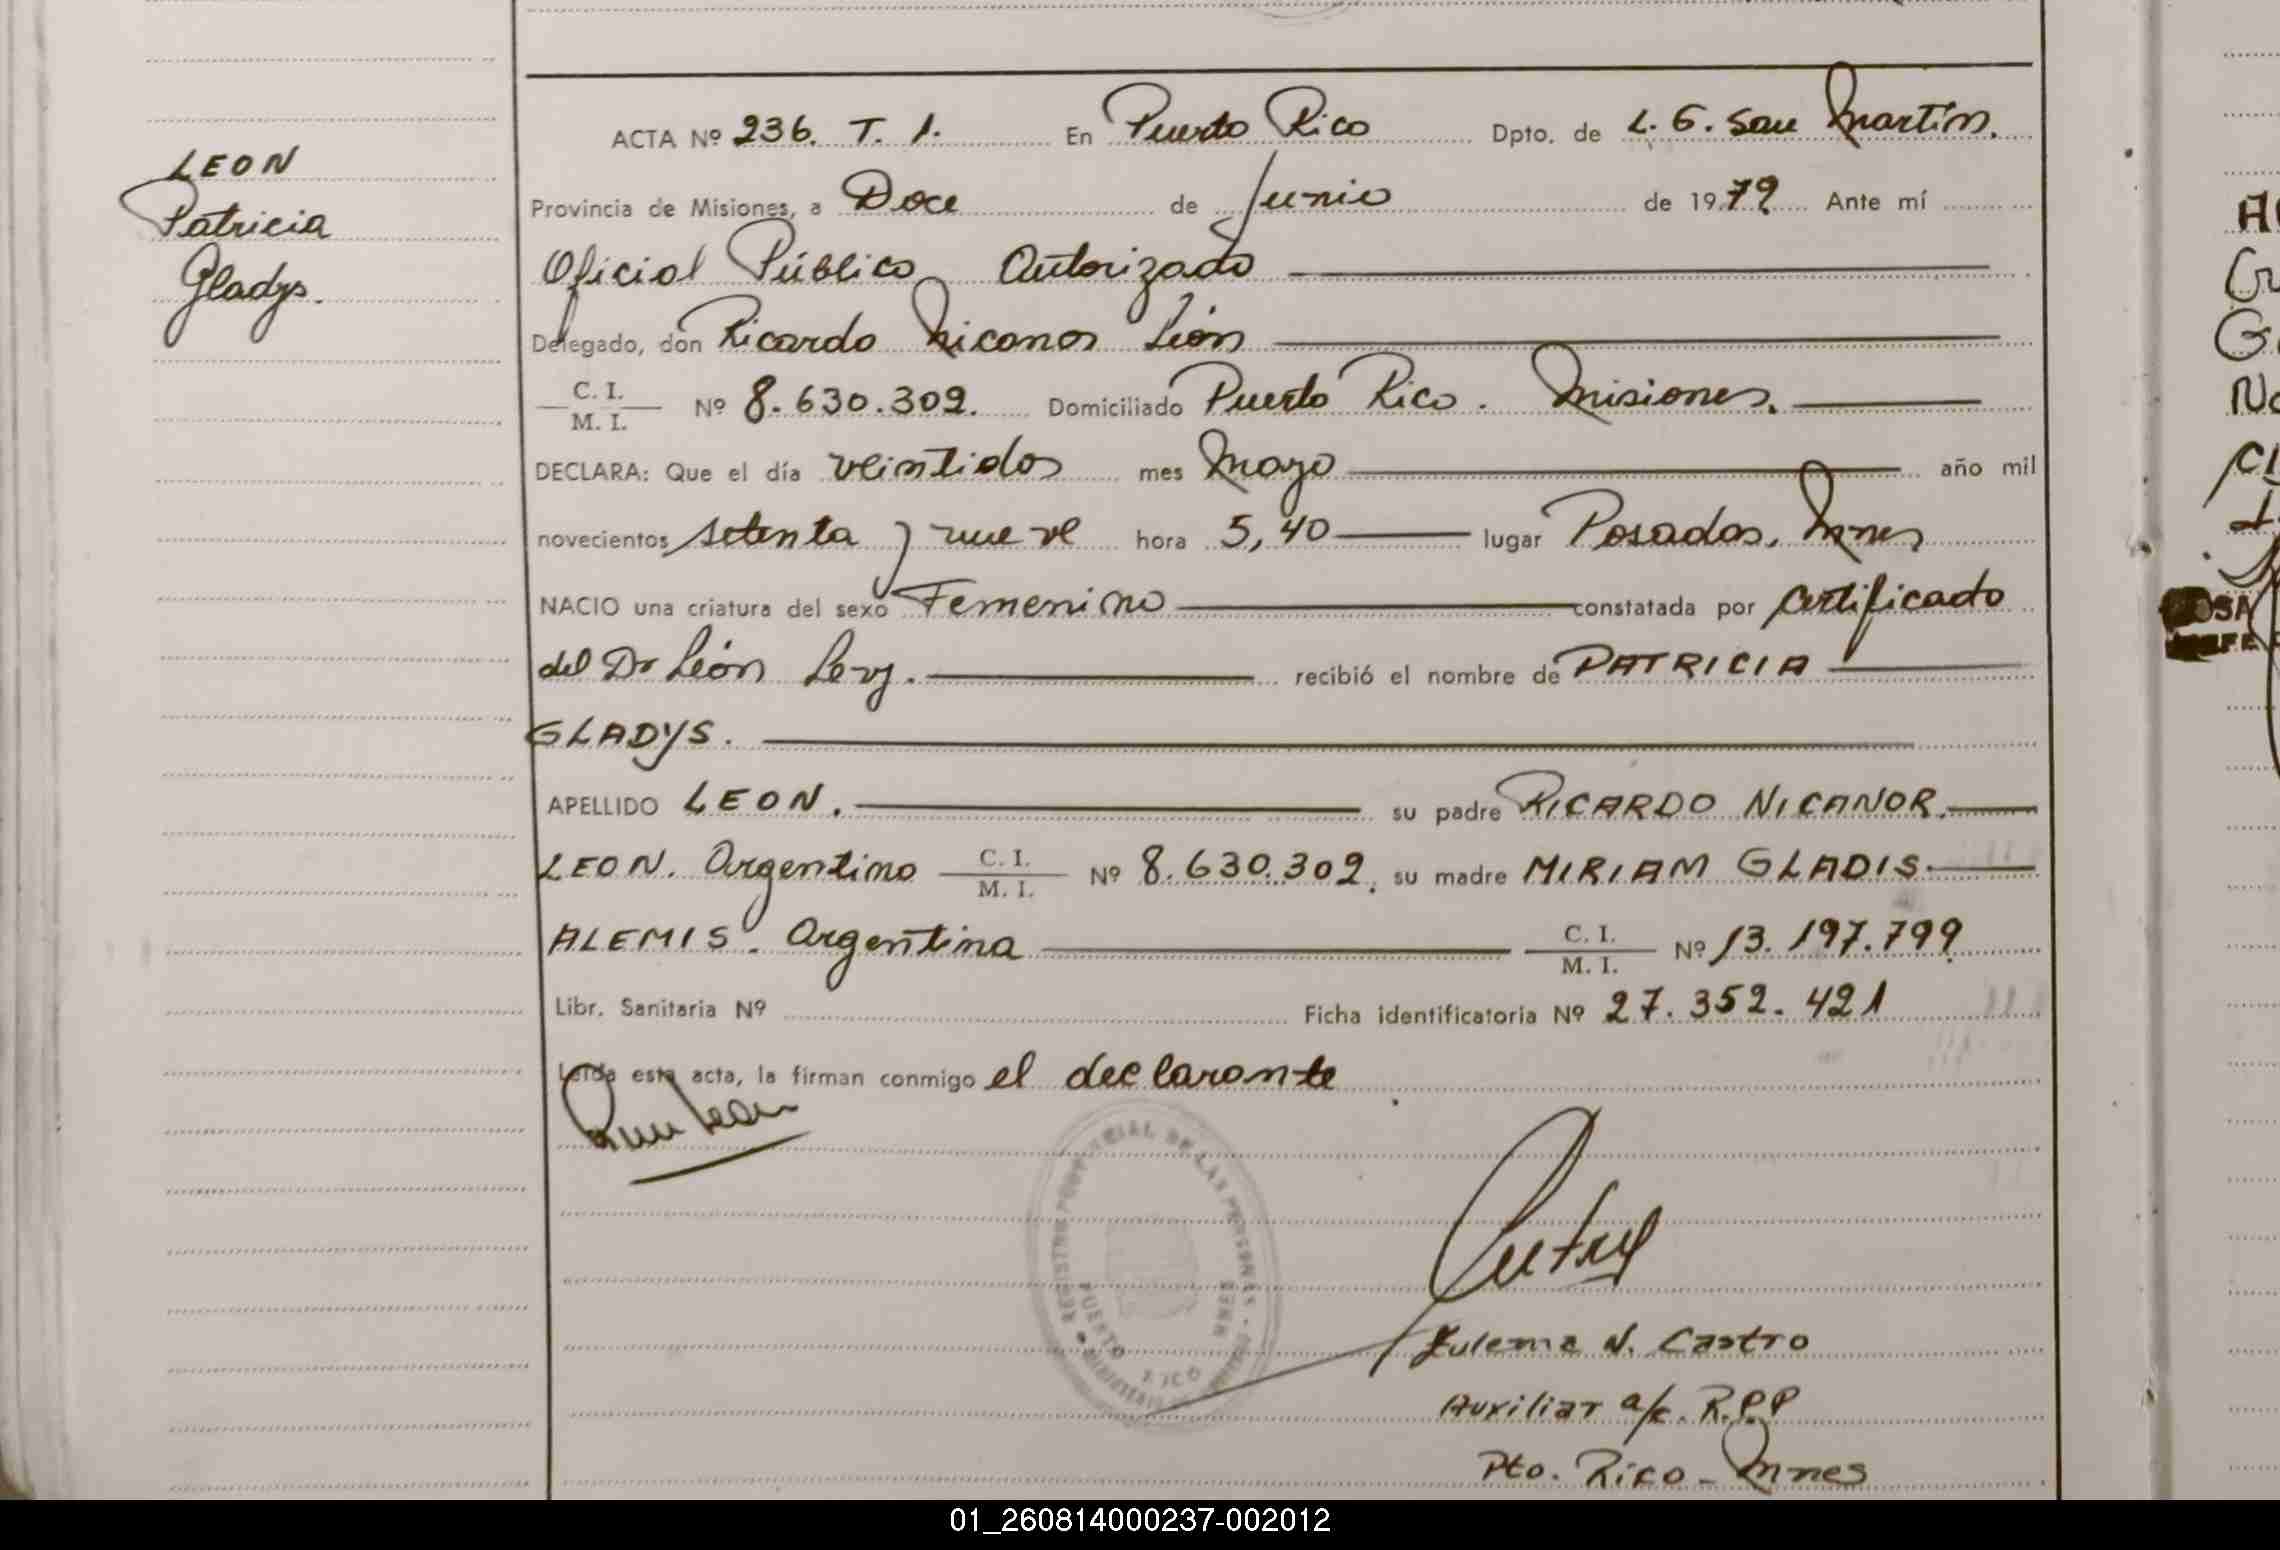 LEON
Patricia
Gladys.
ACTA Nº 236. T. 1. En Puerto Rico Dpto. de L. G. San Martín.
Provincia de Misiones, a Doce de Junio de 1979 Ante mí
Oficial Público Autorizado
Delegado, don Ricardo Nicanor León
C. I.
M. I. Nº 8.630.302. Domiciliado Puerto Rico. Misiones.
DECLARA: Que el día veintidos mes Mayo año mil
novecientos setenta y nueve hora 5,40 lugar Posadas, Mnes
NACIO una criatura del sexo Femenino constatada por certificado
del Dr León Levy. recibió el nombre de PATRICIA
GLADYS.
APELLIDO LEON. su padre RICARDO NICANOR.
LEON. Argentino C. I. M. I. Nº 8.630.302, su madre MIRIAM GLADIS
ALEMIS. Argentina C. I. M. I. Nº 13.197.799
Libr. Sanitaria Nº Ficha identificatoria Nº 27.352.421
Leída esta acta, la firman conmigo el declarante
REGISTRO PROVINCIAL DE LAS PERSONAS
PUERTO RICO MNES
Zulema N. Castro
Auxiliar a/c. R.P.P
Pto. Rico - Mnes
01_260814000237-002012